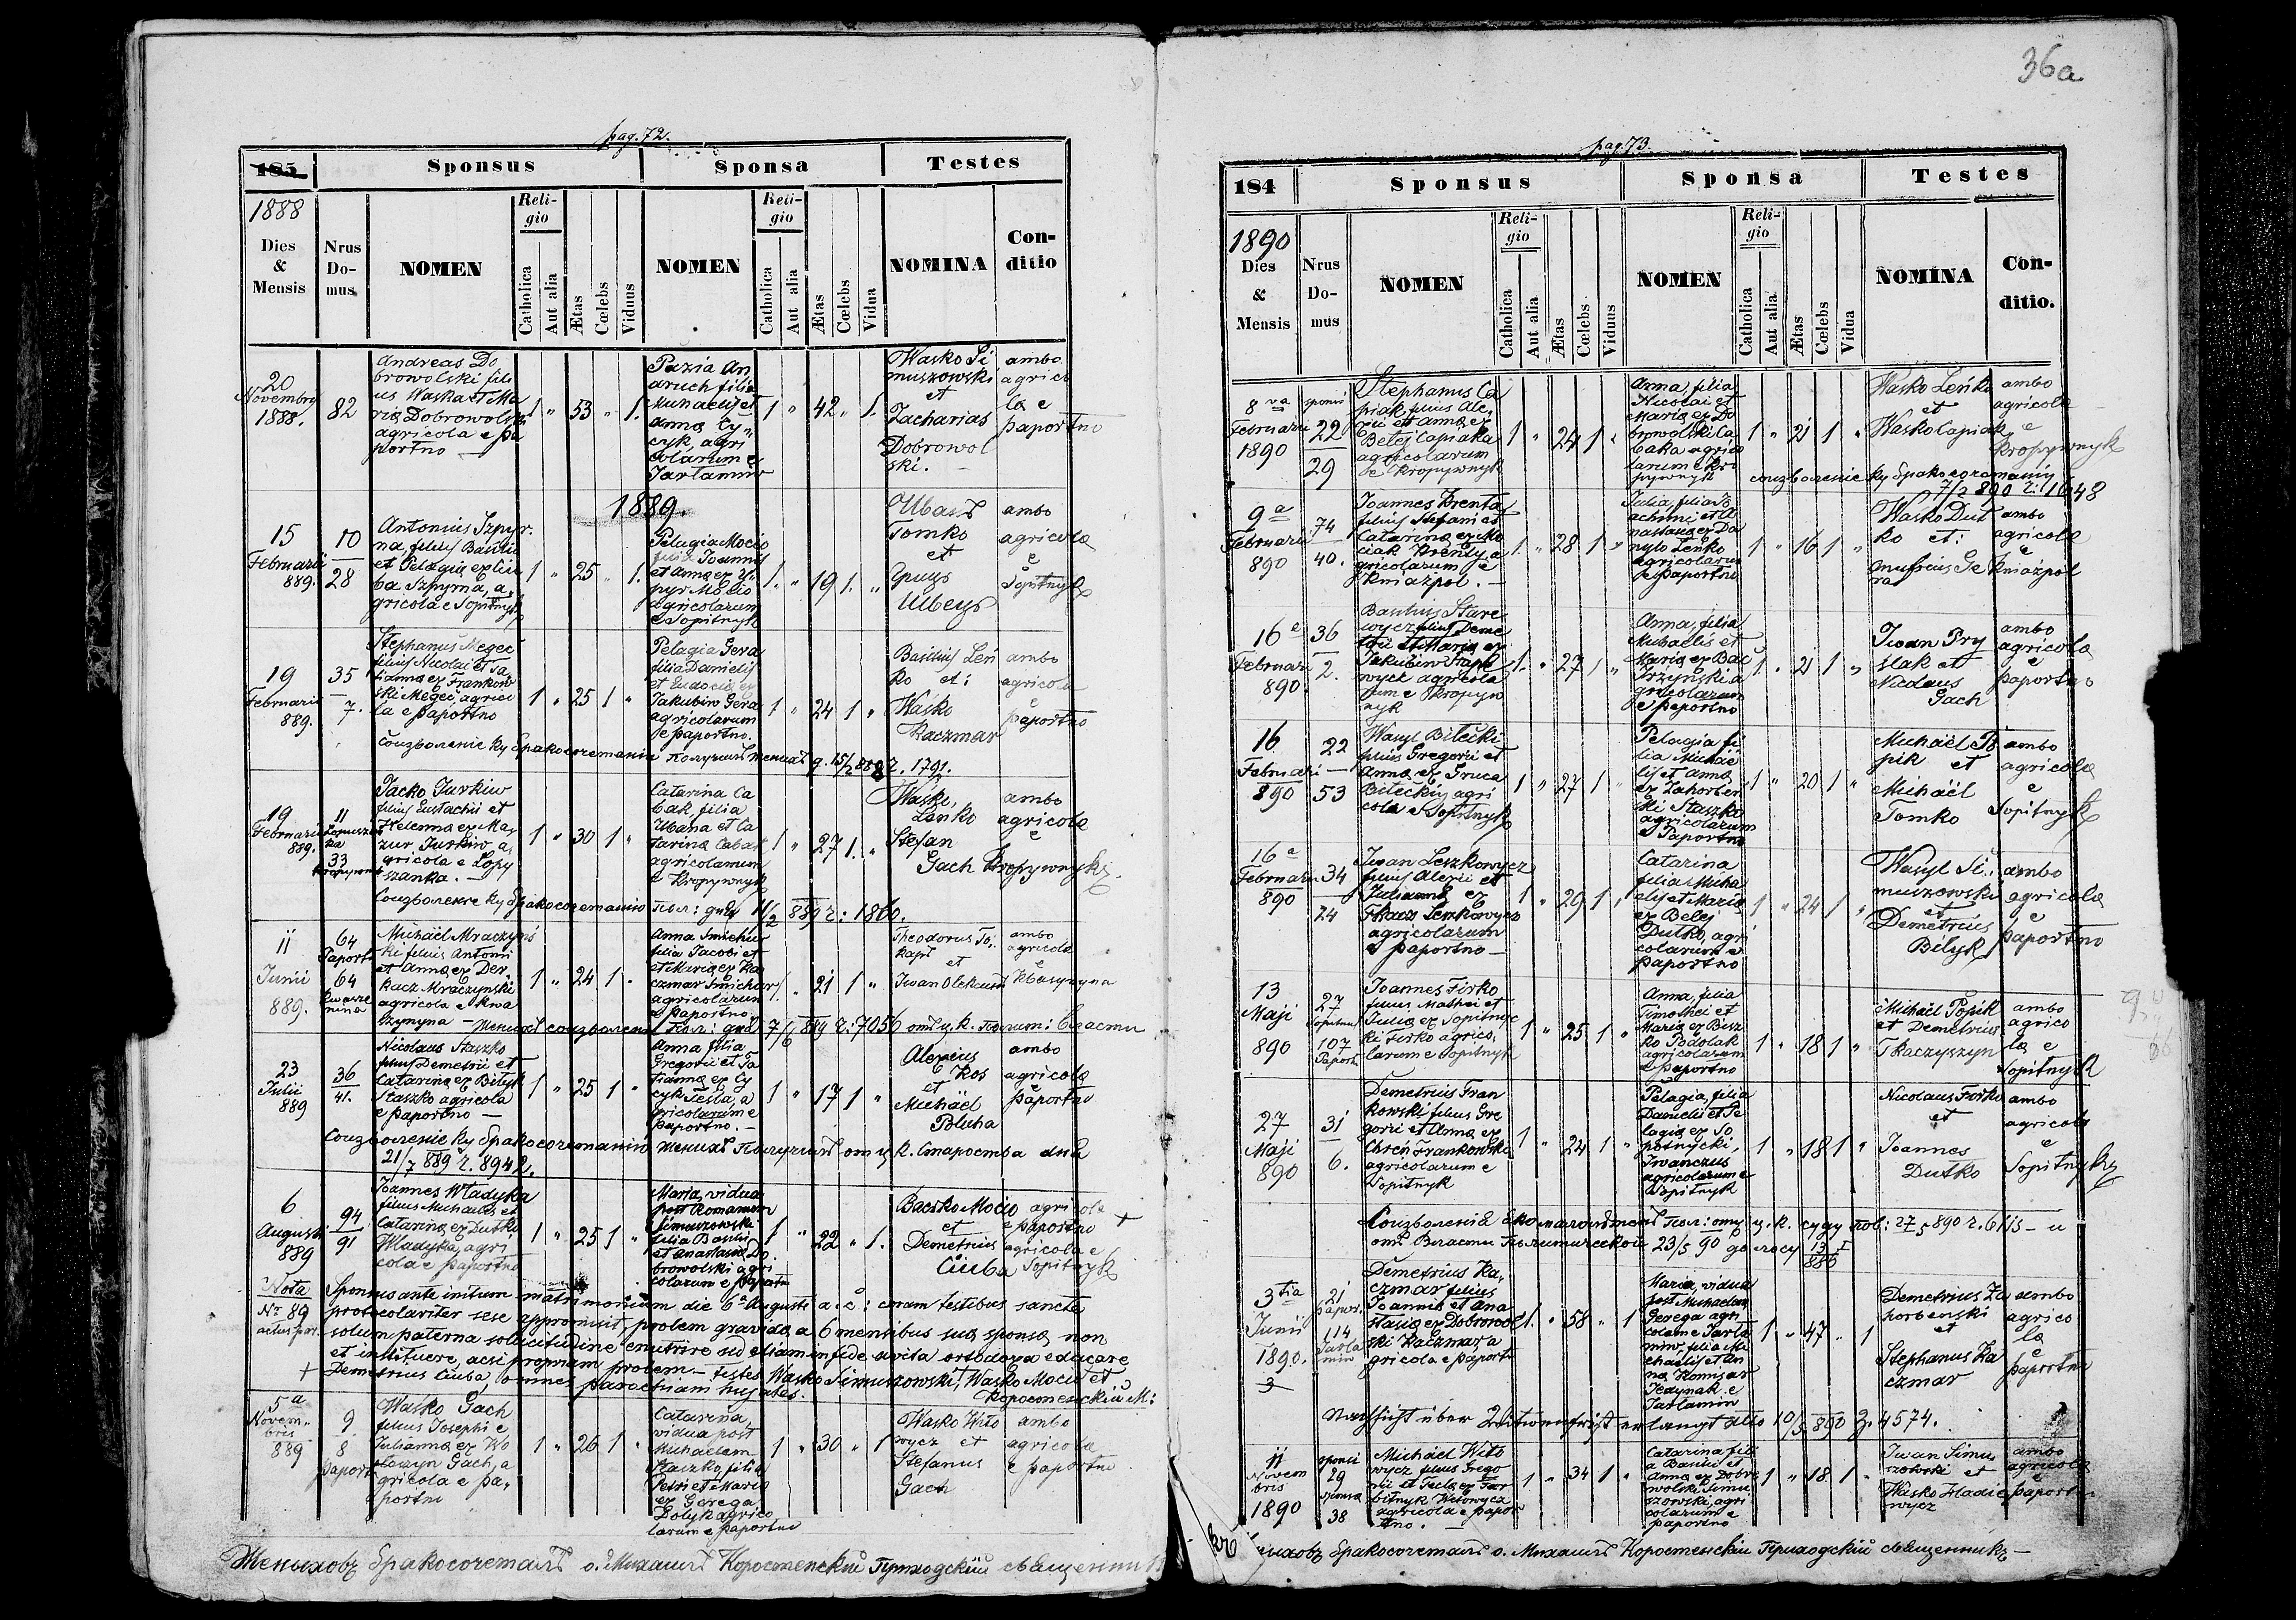 36a
pag. 72.
185
Sponsus
Sponsa
Testes
1888
Dies
&
Mensis
Nrus
Do-
mus
NOMEN
Reli-
gio
Catholica
Aut alia
Ætas
Cœlebs
Viduus
NOMEN
Reli-
gio
Catholica
Aut alia
Ætas
Cœlebs
Vidua
NOMINA
Con-
ditio
20
Novembris
1888.
82
Andreas Do
browolski fili
us Waska et Ma
ria Dobrowolski
agricola e Pa
portno
1 " 53 " 1.
Pazia An
druch filia
Michaelis et
Anna Cy
cyk agri
colarum e
Tarlamiw
1 " 42 " 1.
Wasko Si
muszowski
et
Zacharias
Dobrowol
ski.
ambo
agrico
la e
Paportno
1889.
15
Februarii
889.
10
28
Antonius Szpyr
na, filius Basilii
et Pelagia ex Ciu
ba Szpyrna, a
gricola e Sopitnyk
1 " 25 " 1.
Pelagia Mocio
filia Joannis
et Anna ex
Mocio
agricolarum
e Sopitnyk
1. " 19 1. "
Tomko
et
ambo
agricola
e
Sopitnyk
19
Februarii
889.
35
7.
Stephanus Megec
filius Nicolai et Ta
tianna ex Frankow
ski Megec, agrico
la e Paportno
1 " 25 1 "
Pelagia Gera
filia Danielis
et Eudocia ex
Jakubiw Gera
agricolarum
e Paportno.
1 " 24 1 "
Basilius Leń
ko et:
Wasko
Kaczmar
ambo
agricola
e
Paportno
Соизволение ку бракосочетанию получилъ женихъ д. 15/2 888 Z. 1791.
19
Februarii
889.
11
Lopuszan
ka
33
Kropywnyk
Jacko Jurkiw
filius Eustachii et
Helenna ex Ma
zur Jurkiw a,
gricola e Lopu
szanka.
1 " 30 1 "
Catarina Ca
bak filia
Urbana et Ca
tarina Cabak
agricolarum
e Kropywnyk
1 " 27 1. "
Wasko,
Lenko
Stefan
Gach
ambo
agricola
e
Kropywnyk
Соизволение ку бракосочетанию пол: дня 11/2 889 Z: 1860.
11
Junii
889.
64
Paportn
64
Kwasze
nina
Michäel Mraczyńs
ki filius Antonii
et Anna ex Der
kacz Mraczynski
agricola e Kwa
szynyna
1 " 24 1 "
Anna Smichur
filia Jacobi et
Maria ex Ka
czmar Smichur
agricolarum
e Paportno
1. " 21 1 "
Theodorus To
kapt
et
Iwan Oleksiw
ambo
agricola
e
Kwasynyna
женихъ соизволение пол: дня 7/6 889 Z: 7056 отъ ц. к. полит: Власти
23
Julii
889
36
41.
Nicolaus Staszko
filius Demetrii et
Catarina ex Bityk
Staszko agricola
e Paportno
1 " 25 1 "
Anna filia
Gregorii et Ta
tianna ex Cy
cyk Tesla, a
gricolarum e
Paportno.
1 " 17 1 "
Alexius
Kos
et
Michäel
Poluha
ambo
agricola
e
Paportno
Соизволение ку бракосочетанию женихъ получилъ от ц. к. староства дня
21/7 889 Z. 8942.
6
Augusti
889
94
91
Joannes Wladyka
filius Michaelis et
Catarina ex Dutko
Wladyka, agri
cola e Paportno
1 " 25 1 "
Maria, vidua
post Romanum
Simuszowski
filia Basilii
et Anastasia Do
browolski agri
colarum e Paportn
1 " 22 " 1.
Wasko Mocio
et
Demetrius
Ciuba
agricola
e Paportno
agricola e
Sopitnyk
+
Nota
Nr 89
actus pos.
Sponsus ante initum matrimonium die 6a Augusti a. c: coram testibus sancte
protocolariter sese appromisit, prolem gravida a 6 mensibus sua sponsa, non
solum paterna solicitudine enutrire sed etiam in fide avita ortodoxa educare
et instituere, acsi propriam prolem – testes Wasko Simuszowski, Wasko Mocio et
+ Demetrius Ciuba, omnes parochiani hujates.
Коростенскій М:
5a
Novem
bris
889
9
8
Paport
Wasko Gach
filius Josephi e
Julianna ex Wo
loczyn Gach, a
gricola e Pa,
portno
1 " 26 1 "
Catarina,
vidua post
Michaelem
Staszko, filia
Petri et Maria
ex Gerega
Dolyk agrico
larum e Paportno
1 " 30 " 1
Wasko Wito
wycz et
Stefanus
Gach
ambo
agricola
e Paportno
Жениховъ бракосочеталъ о. Михаилъ Коростенскій приходскій священник
pag. 73.
184
Sponsus
Sponsa
Testes
1890
Dies
&
Mensis
Nrus
Do-
mus
NOMEN
Reli-
gio
Catholica
Aut alia
Ætas
Cœlebs
Viduus
NOMEN
Reli-
gio
Catholica
Aut alia
Ætas
Cœlebs
Vidua
NOMINA
Con-
ditio.
8va
Februarii
1890
sponsi
22
29
Stephanus Ca
piak, filius Ale
xii et Anna ex
Belej Capiaka
agricolarum
de Kropywnyk
1 " 24 1 "
Anna, filia
Nicolai et
Maria ex Do
browolski Ca
baka agrico
larum e Kro
pywnyk
1 " 21 1 "
Wasko Leńko
et
Wasko Capiak
ambo
agricola
e
Kropywnyk
соизволение ку бракосочетанию
7/2 890 Z: 1648
9a
Februarii
890
74
40.
Joannes Krenta
filius Stefani et
Catarina ex Mo
ciak Krenty a
gricolarum e
Kniazpol.
1. " 28 1 "
Julia, filia Jo
achimi et A
nastasia ex Da
nylo Leńko
agricolarum
e Paportno
1 " 16 1 "
Wasko Dut
ko et:
Onufrius Ge
ra
ambo
agricola
e
Kniazpol
16a
Februari
890.
36
2.
Basilius Stare
wycz filius Deme
trii et Maria ex
Jakubiw Stare
wycz agricola
rum e Kropyw
nyk
1. " 27 1 "
Anna, filia
Michaelis et
Maria ex Bac
rzynski a
gricolarum
e Paportno
1. " 21 1 "
Iwan Pry
slak et
Nicolaus
Gach
ambo
agricola
e
Paportno
16
Februari
890
22
53
Wasyl Bilecki
filius Gregorii et
Anna ex Gruca
Bileckiy agri
cola e Sopitnyk
1 " 27 1 "
Pelagia fi
lia Michäe
lis et Anna
ex Zahorben
ski Staszko
agricolarum
e Paportno
1 " 20 1 "
Michäel Po
pik et
Michäel
Tomko
ambo
agricola
e
Sopitnyk
16a
Februarii
890
34
24
Iwan Leszkowycz
filius Alexii et
Julianna ex
Tkacz Leszkowycz
agricolarum
e Paportno
1 " 29 1 "
Catarina
filia Micha
elis et Maria
ex Belej
Dutko, agri
colarum e
Paportno
1 " 24 1 "
Wasyl Si
muszowski
et
Demetrius
Bilyk
ambo
agricola
e
Paportno
13
Maji
890
27
Sopitnyk
107
Paportn
Joannes Firko
filius Mathei et
Julia ex Sopitnyc
ki Firko agrico
larum e Sopitnyk
1 " 25 1 "
Anna, filia
Timothei et
Maria ex Bisz
ko Podolak
agricolarum
e Paportno
1 " 18 1 "
Michäel Popik
et Demetrius
Tkaczyszyn
ambo
agrico
la e
Sopitnyk
27
Maji
890
31
6.
Demetrius Fran
kowski filius Gre
gorii et Anna ex
Chreń Frankowski
agricolarum e
Sopitnyk
1 " 24 1 "
Pelagia, filia
Danielii et Pe
lagia ex So
potnycki,
Iwanczus
agricolarum e
Sopitnyk
1 " 18 1 "
Nicolaus Forko
et
Joannes
Dutko
ambo
agricola
e
Sopitnyk
3tia
Junii
1890.
3
21
Papor.
114
Tarla
miw
Demetrius Ka,
czmar filius
Joannis et Ana
stasia ex Dobrowol
ski Kaczmar, a
gricola e Paportn
1. " 58 " 1
Maria, vidua
post Michaelem
Gerega agri
colam e Tarla
miw, filia Mi
chaelis et An
na Komisar
Jedynak e
Tarlamin
1 " 47 " 1
Demetrius Za
horbenski
et
Stephanus Ka
czmar
ambo
agrico
la
e
Paportno
Nachsicht über Witwenfrist erlangt dtto 10/5 890 Z. 4574.
11
Novem
bris
1890
sponsi
29
sponsa
38
Michäel Wito
wycz filius Grego
rii et Tecla ex Tar
bitnyk Witowycz
agricola e Papor
tno.
1 " 34 1 "
Catarina fili
a Basilii et
Anna ex Dobro
wolski Simu
szowski, agri
colarum e
Paportno
1 " 18 1 "
Iwan Simu
szowski et
Wasko Hladie
wycz
ambo
agricola
e
Paportn
жениховъ бракосочеталъ о. Михаилъ Коростенскій приходскій священникъ